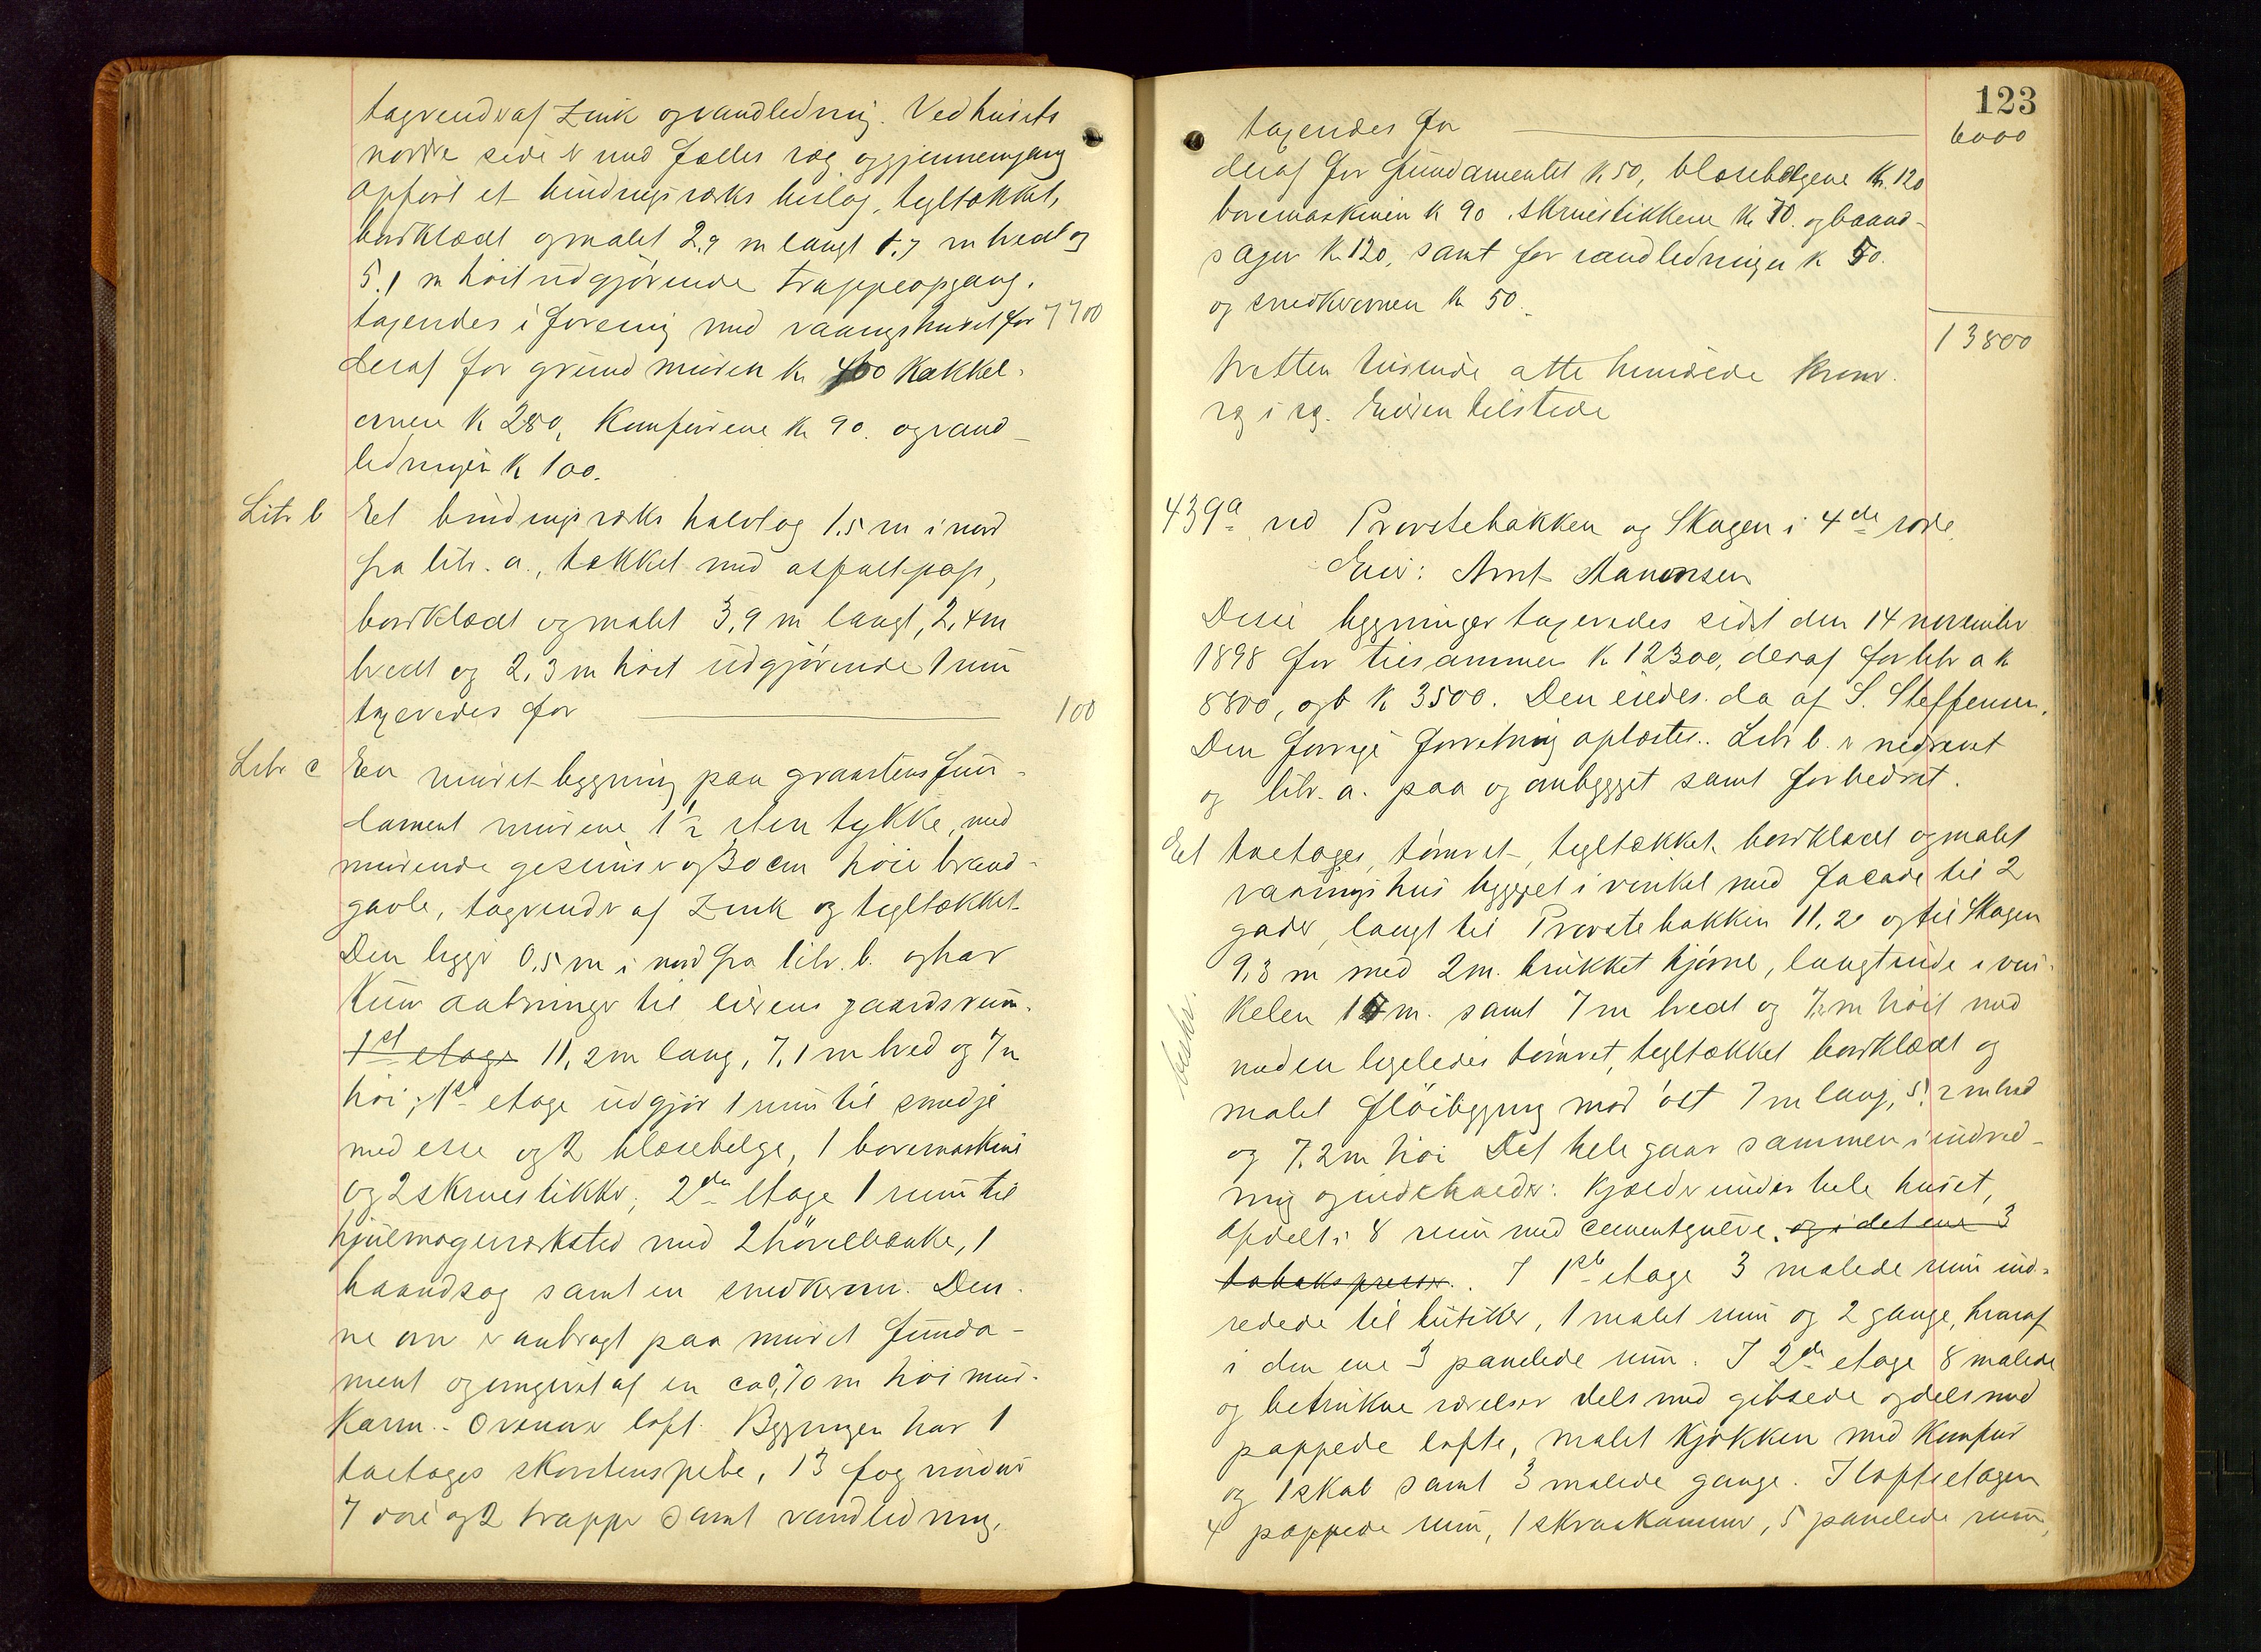 tagrender af Zink og vandledning. Ved husets
nordre side er med fælles væg og gjennemgang
opført et bindingsværks bislag, tegltækket,
bordklædt og malet 2,9 m langt 1,7 m bredt og
5,1 m høit udgjørende trappeopgang.
taxeredes i forening med vaaningshuset for 7700
deraf for grundmuren k 400 kakkel-
ovnene k 280, Komfurene k 90. og vand-
ledningen k 100.
Litr b Et bindingsværks halvtag 1,5 m i nord
fra litr. a., tækket med asfaltpap,
bordklædt og malet 3,9 m langt, 2,4 m
bredt og 2,3 m høit udgjørende 1 rum
taxeredes for 100
Litr c En muret bygning paa graastens fun-
dament murene 1½ sten tykke, med
murede gesimser og 30 cm høie brand-
gavle, tagrender af Zink og tegltækket
Den ligger 0,5 m i nord fra litr. b. og har
Kun aabninger til eierens gaardsrum.
1st etage 11,2 m lang, 7,1 m bred og 7 m
høi; 1st etage udgjør 1 rum til smedje
med esse og 2 blæsebelge, 1 boremaskine
og 2 skruestikker; 2den etage 1 rum til
hjulmagerverksted med 2 høvelbænke, 1
baandsag samt en smedkeovn. Den-
ne ovn er anbragt paa muret funda-
ment og omgivet af en ca 0,70 m høi mur-
karm. Ovenover loft. Bygningen har 1
toetages skorstenspibe, 13 fag vinduer
7 døre og 2 trapper samt vandledning,
123
taxeredes for 6000
deraf for fundamentet k. 50, blæsebelgene k. 120
boremaskinen k 90. skruestikkene k 70. og baand-
sagen k. 120, samt for vandledningen k 50.
og snedkerovnen k 50.
13800
tretten tusinde atte hundrede kroner.
væg i væg. Eieren tilstede
439a ved Provstebakken og Skagen i 4de rode.
Eier: Arnt Aanensen
Disse bygninger taxeredes sidst den 14 november
1898 for tilsammen k 12300, deraf for litr a k
8800, og b k 3500. Den eiedes da af S. Steffensen.
Den forrige forretning oplæstes. Litr b. er nedrevet
og litr. a. paa og ombygget samt forbedret.
Et toetages, tømret, tegltækket bordklædt og malet
vaaningshus bygget i vinkel med facade til 2
gader, langt til Provstebakken 11,2 og til Skagen
9,3 m med 2 m. brukket hjørne, langs inde i vin-
kelen 17 m. samt 7 m bredt og 7,2 m høit med
med en ligeledes tømret, tegltækket bordklædt og
malet fløibygning mod øst 7 m lang, 5,2 m bred
og 7,2 m høi Det hele gaar sammen i indred-
ning og indeholder: Kjælder under hele huset,
afdelt i 8 rum med cementgulve. og i det ene 3
tobakspresser. I 1st etage 3 malede rum ind-
redede til butiker, 1 malet rum og 2 gange, hvoraf
i den ene 3 panelede rum. I 2den etage 8 malede
og betrukne værelser dels med gibsede og dels med
pappede lofte, malet kjøkken med Komfur
og 1 skab samt 3 malede gange. I loftsetagen
4 pappede rum, 1 skraakammer, 5 panelede rum,